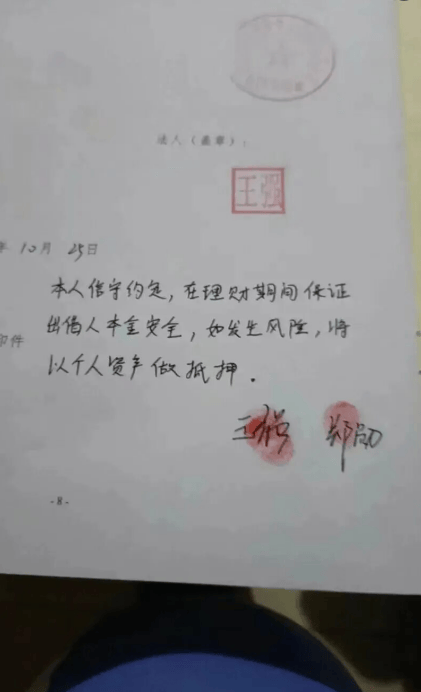 法人（盖章）：
王强
年10月25日
本人信守约定，在理财期间保证
出借人本金安全，如发生风险，将
印件
以个人资产做抵押.
王强 郑勋
-8-